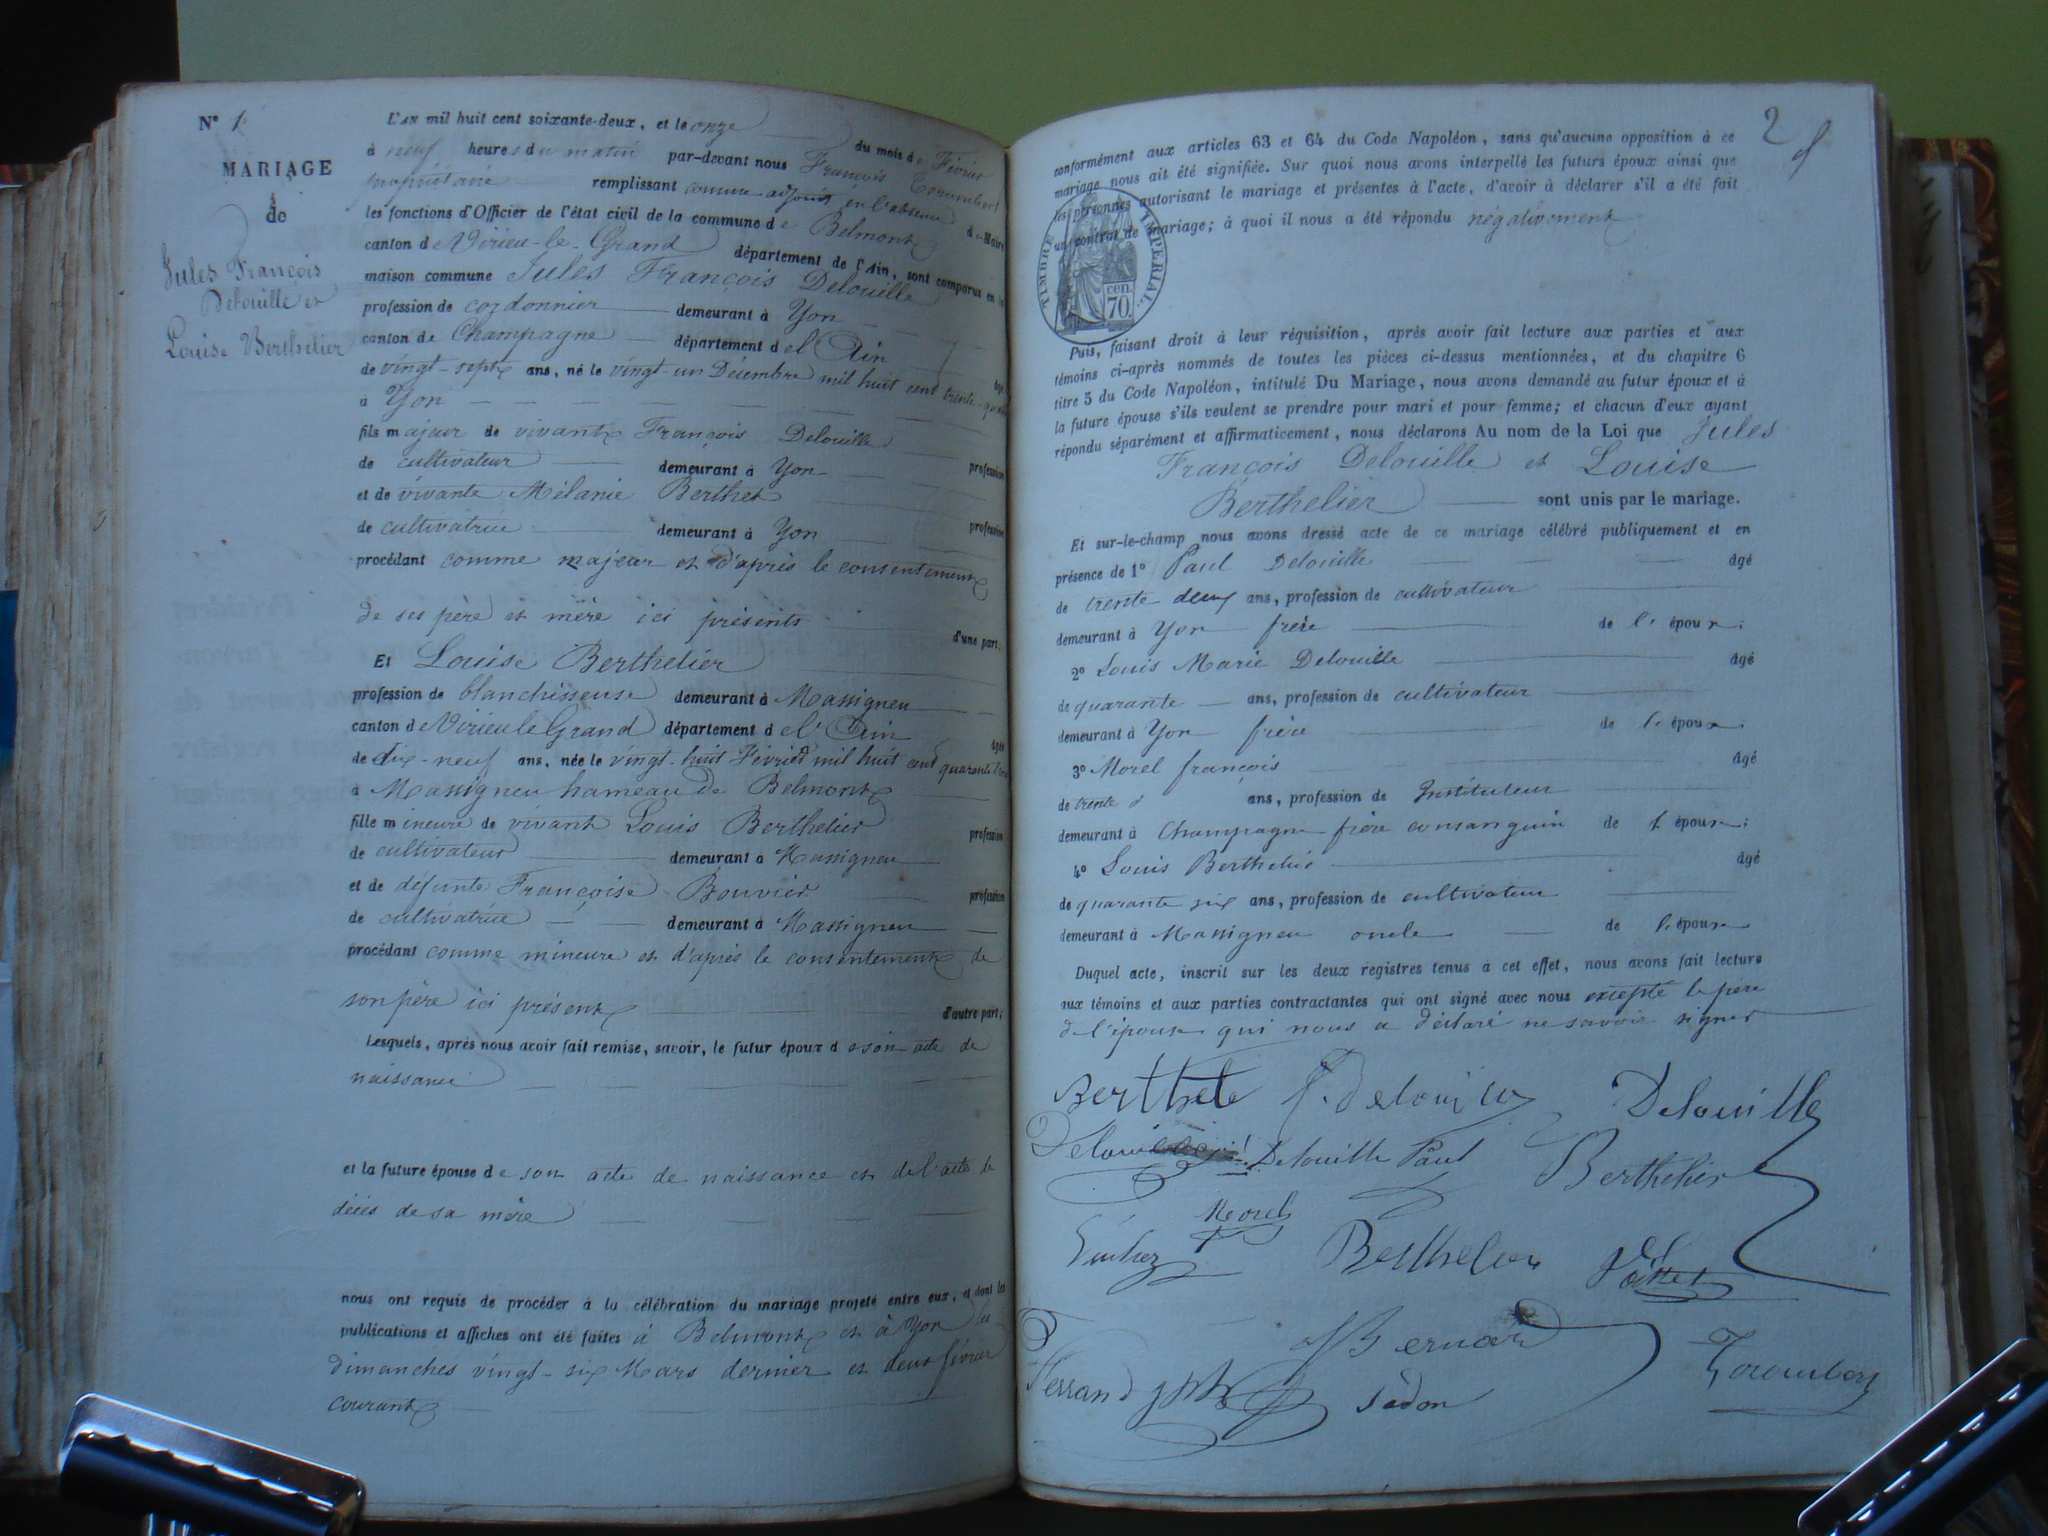 N° 1
MARIAGE
de
Jules François
Delouille et
Louise Berthelier
L'AN mil huit cent soixante-deux, et le onze du mois de Février
à neuf heures du matin par-devant nous François Corumbert
propriétaire remplissant comme adjoint en l'absence du Maire
les fonctions d'Officier de l'état civil de la commune de Belmont
canton de Virieu-le-Grand département de l'Ain, sont comparus en la
maison commune Jules François Delouille
profession de cordonnier demeurant à Yon
canton de Champagne département de l'Ain âgé
de vingt-sept ans, né le vingt-un Décembre mil huit cent trente-quatre
à Yon
fils majeur de vivant François Delouille profession
de cultivateur demeurant à Yon
et de vivante Mélanie Berthet profession
de cultivatrice demeurant à Yon
procédant comme majeur et d'après le consentement
de ses père et mère ici présents d'une part;
Et Louise Berthelier
profession de blanchisseuse demeurant à Massigneu
canton de Virieu le Grand département de l'Ain âgée
de dix-neuf ans, née le vingt-huit Février mil huit cent quarante trois
à Massigneu hameau de Belmont
fille mineure de vivant Louis Berthelier profession
de cultivateur demeurant à Massigneu
et de défunte Françoise Bouvier profession
de cultivatrice demeurant à Massigneu
procédant comme mineure et d'après le consentement de
son père ici présent d'autre part;
Lesquels, après nous avoir fait remise, savoir, le futur époux de son acte de
naissance
et la future épouse de son acte de naissance et de l'acte de
décès de sa mère
nous ont requis de procéder à la célébration du mariage projeté entre eux, et dont les
publications et affiches ont été faites à Belmont et à Yon les
dimanches vingt-six Mars dernier et deux février
courant
2
conformément aux articles 63 et 64 du Code Napoléon, sans qu'aucune opposition à ce
mariage nous ait été signifiée. Sur quoi nous avons interpellé les futurs époux ainsi que
les personnes autorisant le mariage et présentes à l'acte, d'avoir à déclarer s'il a été fait
un contrat de mariage; à quoi il nous a été répondu négativement
TIMBRE IMPERIAL
cen.
70.
Puis, faisant droit à leur réquisition, après avoir fait lecture aux parties et aux
témoins ci-après nommés de toutes les pièces ci-dessus mentionnées, et du chapitre 6
titre 5 du Code Napoléon, intitulé Du Mariage, nous avons demandé au futur époux et à
la future épouse s'ils veulent se prendre pour mari et pour femme; et chacun d'eux ayant
répondu séparément et affirmaticement, nous déclarons Au nom de la Loi que Jules
François Delouille et Louise
Berthelier sont unis par le mariage.
Et sur-le-champ nous avons dressé acte de ce mariage célébré publiquement et en
présence de 1° Paul Delouille âgé
de trente deux ans, profession de cultivateur
demeurant à Yon frère de l'époux;
2° Louis Marie Delouille âgé
de quarante ans, profession de cultivateur
demeurant à Yon frère de l'époux.
3° Morel françois âgé
de trente ans, profession de Instituteur
demeurant à Champagne frère consanguin de l'épouse;
4° Louis Berthelier âgé
de quarante six ans, profession de cultivateur
demeurant à Massigneu oncle de l'épouse
Duquel acte, inscrit sur les deux registres tenus à cet effet, nous avons fait lecture
aux témoins et aux parties contractantes qui ont signé avec nous excepté le père
de l'épouse qui nous a déclaré ne savoir signer
Berthele f. Delouille Delouille
Delouille Delouille Paul Berthelier
Morel
Berthelier
Bernard
Ferrand Sadon